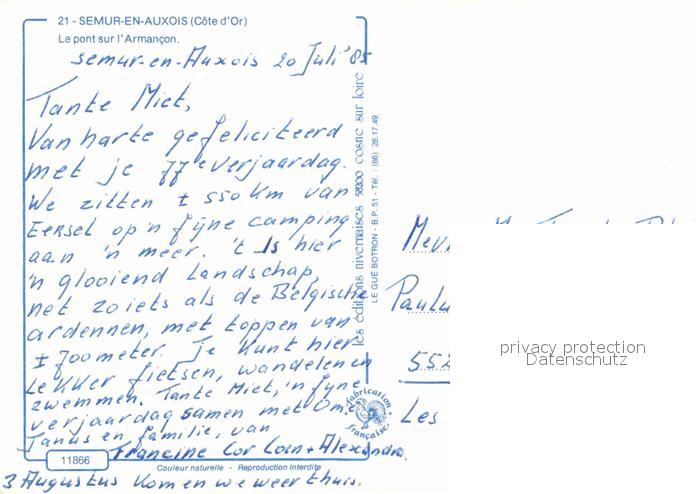 21 - SEMUR-EN-AUXOIS (Côte d'Or)
Le pont sur l'Armançon.
semur-en-Auxois 20 Juli '85
Tante Miet,
Van harte gefeliciteerd
met je 77e verjaardag.
We zitten ± 550 km van
Eersel op 'n fijne camping
aan 'n meer. 't Is hier
'n glooiend landschap,
net zoiets als de Belgische
ardennen, met toppen van
± 700 meter. Je kunt hier
lekker fietsen, wandelen en
zwemmen. Tante Miet, 'n fijne
verjaardag samen met Ome
Janus en familie, van
Francine Cor Coen + Alexandra.
3 Augustus komen we weer thuis.
11866
Couleur naturelle - Reproduction interdite
les éditions nivernaises 58200 cosne sur loire
LE GUÉ BOTRON - B.P. 51 - Tél.: (86) 28.17.49
fabrication française
Mev
Paulu
552
Les
privacy protection
Datenschutz